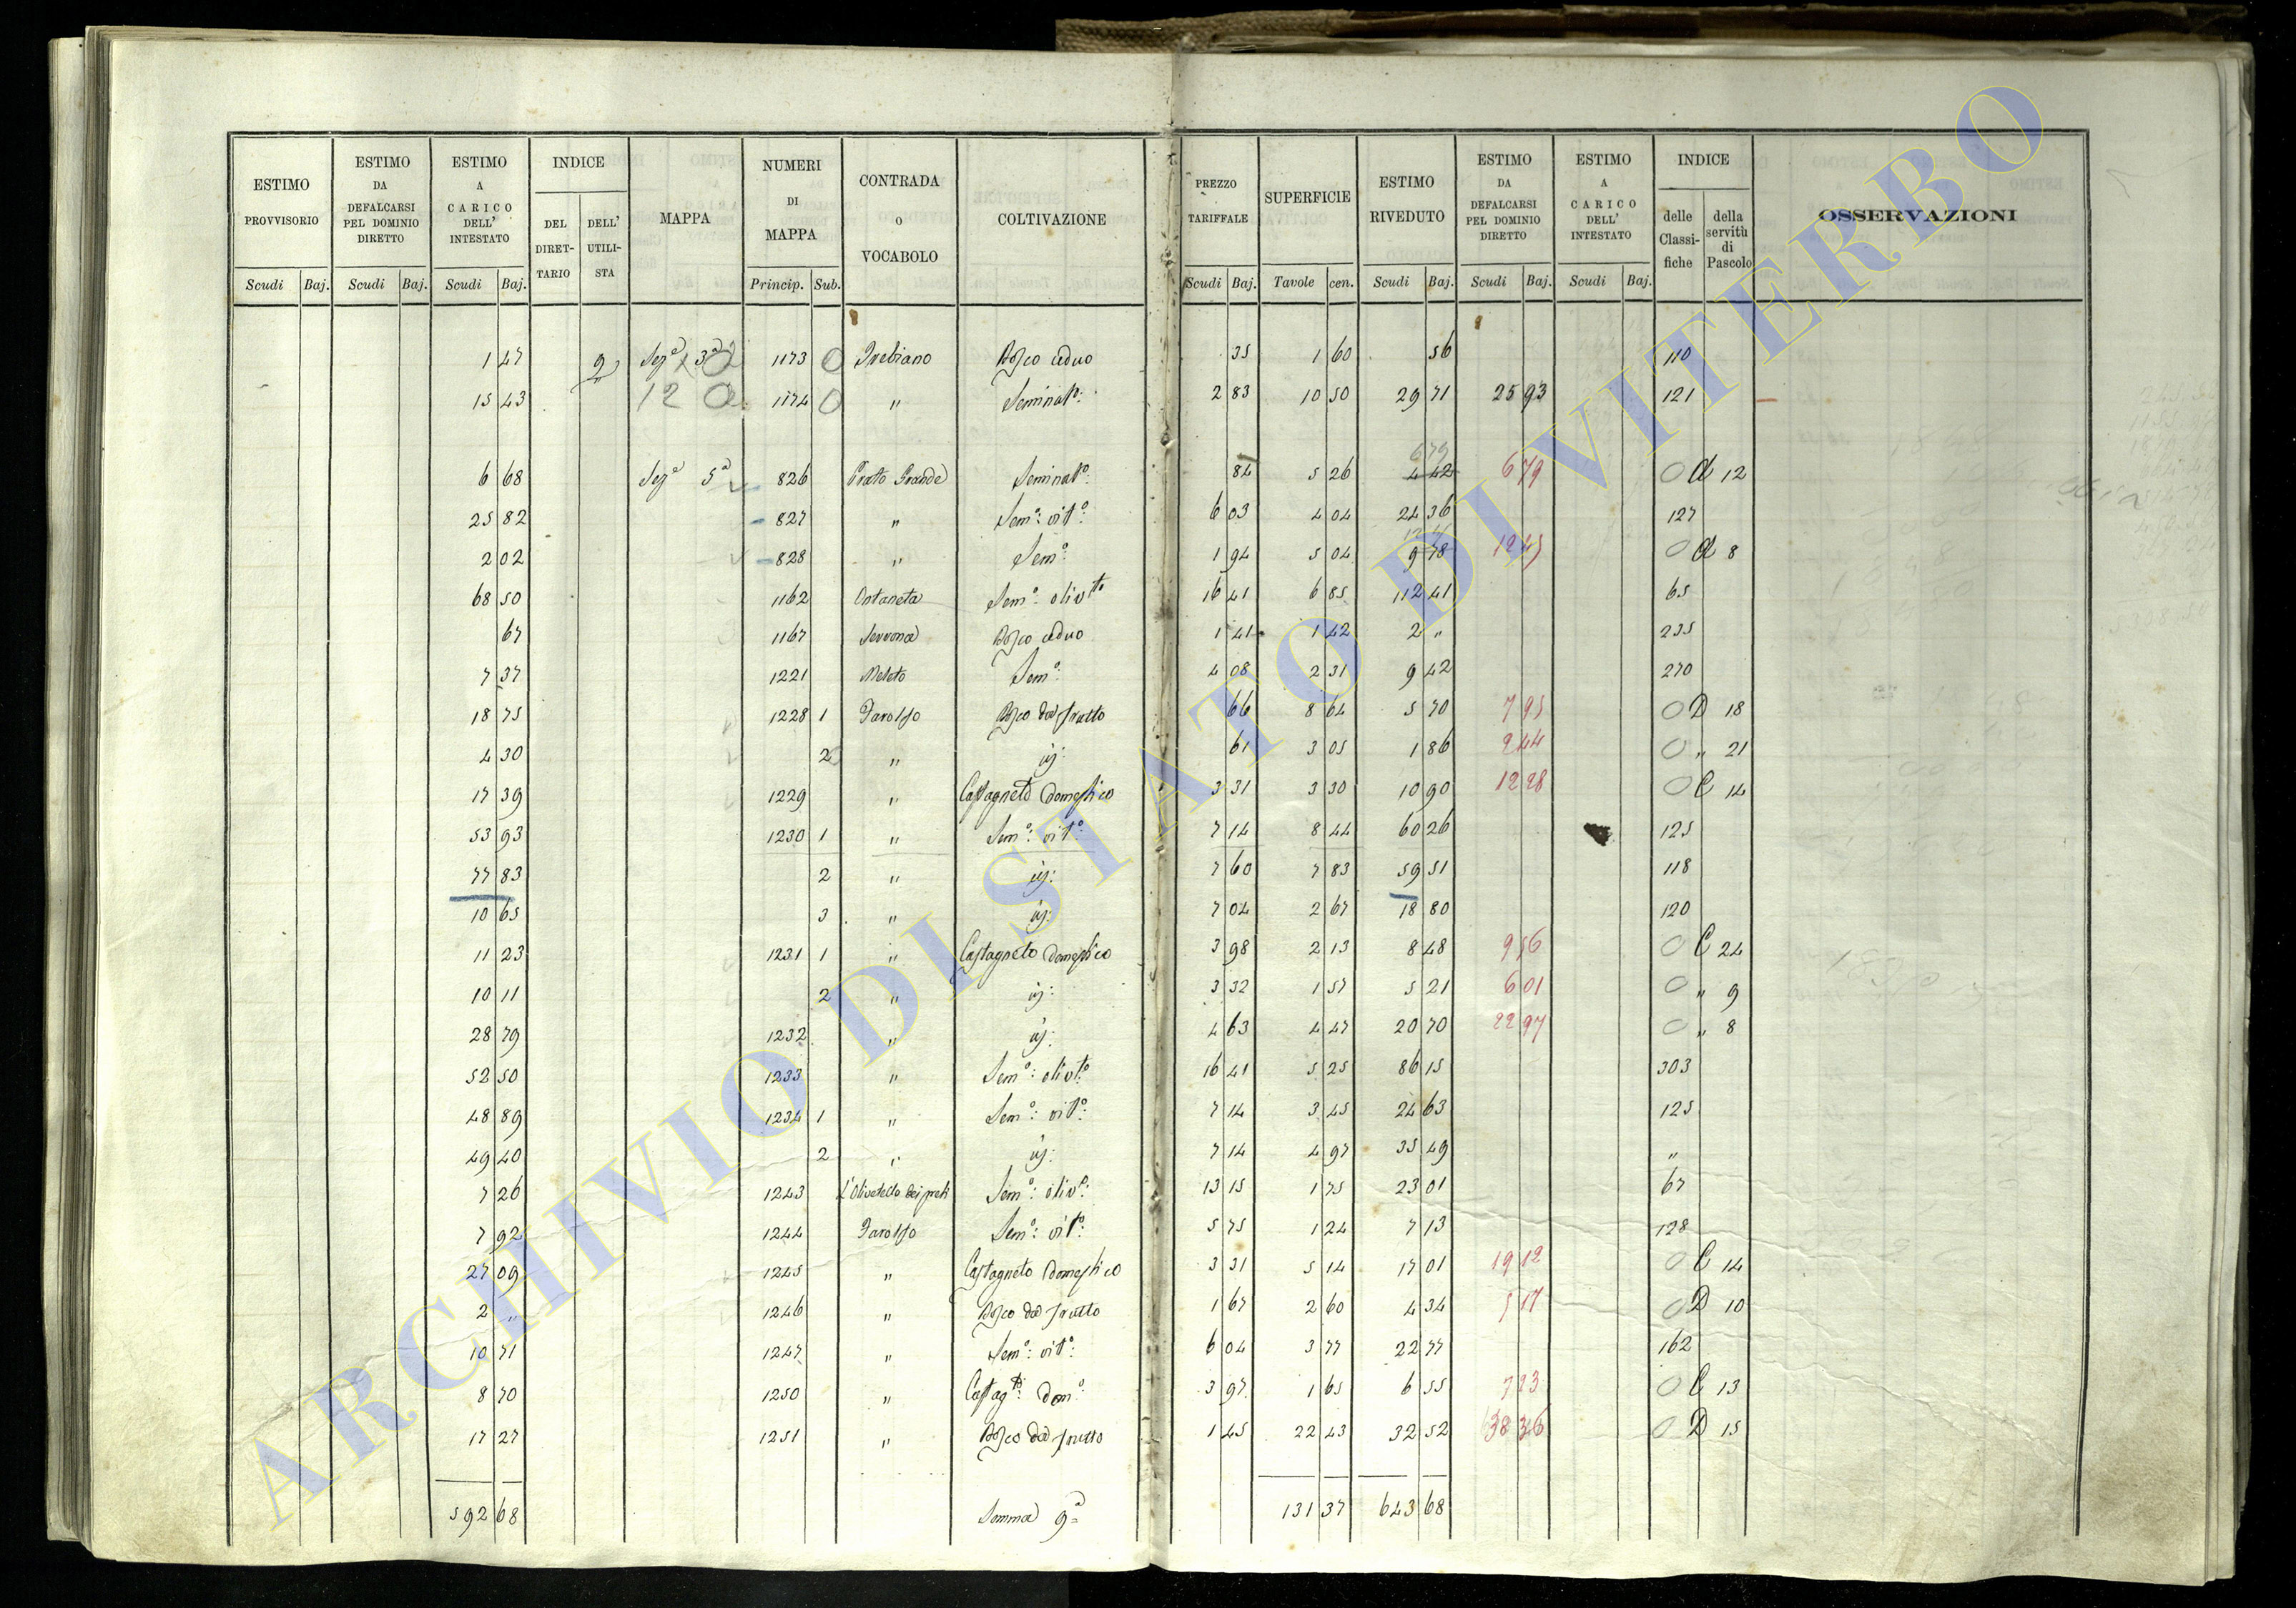 ESTIMO PROVVISORIO | ESTIMO DA DEFALCARSI PEL DOMINIO DIRETTO | ESTIMO A CARICO DELL' INTESTATO | INDICE | MAPPA | NUMERI DI MAPPA | CONTRADA O VOCABOLO | COLTIVAZIONE | PREZZO TARIFFALE | SUPERFICIE | ESTIMO RIVEDUTO | ESTIMO DA DEFALCARSI PEL DOMINIO DIRETTO | ESTIMO A CARICO DELL' INTESTATO | INDICE | OSSERVAZIONI
DEL DIRETTARIO | DELL' UTILISTA | delle Classifiche | della servitù di Pascolo
Scudi Baj. | Scudi Baj. | Scudi Baj. | Princip. Sub. | Scudi Baj. | Tavole cen. | Scudi Baj. | Scudi Baj. | Scudi Baj.
1 47 | 2 | Seza 3a | 1173 0 | Trebiano | Bosco ceduo | 35 | 1 60 | 56 | 110
15 43 | 12 0 | 1174 0 | " | Seminato: | 2 83 | 10 50 | 29 71 | 25 93 | 121
6 68 | Seza 5a | 826 | Prato Grande | Seminato: | 84 | 5 26 | 4 42 | 679 | 6 79 | 0 A 12
25 82 | 827 | " | Semo: vito: | 6 03 | 4 04 | 24 36 | 127
2 02 | 828 | " | Semo: | 1 94 | 5 04 | 9 78 | 12 45 | 0 A 8
68 50 | 1162 | Ontaneta | Semo: olivto | 16 41 | 6 85 | 112 41 | 65
67 | 1167 | Serrona | Bosco ceduo | 1 41 | 1 42 | 2 " | 235
7 37 | 1221 | Meleto | Semo: | 4 08 | 2 31 | 9 42 | 270
18 75 | 1228 1 | Farolfo | Bosco da frutto | 66 | 8 64 | 5 70 | 7 95 | 0 D 18
4 30 | 2 | " | id: | 61 | 3 05 | 1 86 | 2 44 | 0 " 21
17 39 | 1229 | " | Castagneto Domestico | 3 31 | 3 30 | 10 90 | 12 28 | 0 C 14
53 93 | 1230 1 | " | Semo: vito: | 7 14 | 8 44 | 60 26 | 125
77 83 | 2 | " | id: | 7 60 | 7 83 | 59 51 | 118
10 65 | 3 | " | id: | 7 04 | 2 67 | 18 80 | 120
11 23 | 1231 1 | " | Castagneto Domestico | 3 98 | 2 13 | 8 48 | 9 56 | 0 C 24
10 11 | 2 | " | id: | 3 32 | 1 57 | 5 21 | 6 01 | 0 " 9
28 79 | 1232 | " | id: | 4 63 | 4 47 | 20 70 | 22 97 | 0 " 8
52 50 | 1233 | " | Semo: olivto: | 16 41 | 5 25 | 86 15 | 303
48 89 | 1234 1 | " | Semo: vito: | 7 14 | 3 45 | 24 63 | 125
49 40 | 2 | " | id: | 7 14 | 4 97 | 35 49 | "
7 26 | 1243 | L'Olivetello dei preti | Semo: olivo: | 13 15 | 1 75 | 23 01 | 67
7 92 | 1244 | Farolfo | Semo: vito: | 5 75 | 1 24 | 7 13 | 128
27 09 | 1245 | " | Castagneto Domestico | 3 31 | 5 14 | 17 01 | 19 12 | 0 C 14
2 " | 1246 | " | Bosco da frutto | 1 67 | 2 60 | 4 34 | 5 17 | 0 D 10
10 71 | 1247 | " | Semo: vito: | 6 04 | 3 77 | 22 77 | 162
8 70 | 1250 | " | Castagto: Domo: | 3 97 | 1 65 | 6 55 | 7 23 | 0 C 13
17 27 | 1251 | " | Bosco da frutto | 1 45 | 22 43 | 32 52 | 38 36 | 0 D 15
592 68 | Somma 9a | 131 37 | 643 68
ARCHIVIO DI STATO DI VITERBO